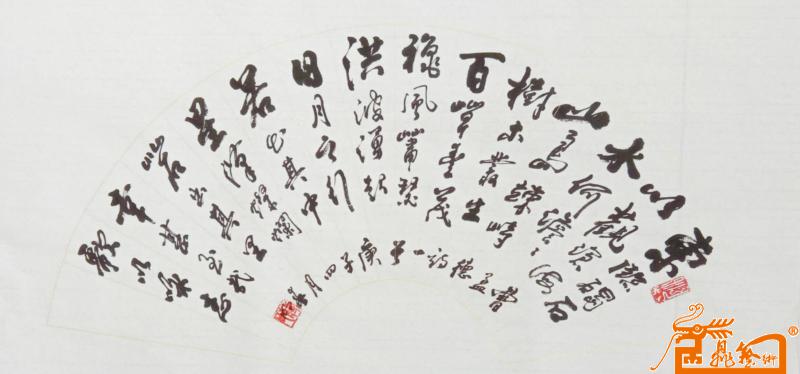 東臨碣石
以觀滄海
水何澹〻
山島竦峙
樹木叢生
百草豐茂
穐風蕭瑟
洪波湧起
日月之行
若出其中
星漢燦爛
若出其里
幸甚至哉
歌以詠志
曹孟德詩一首 庚子四月